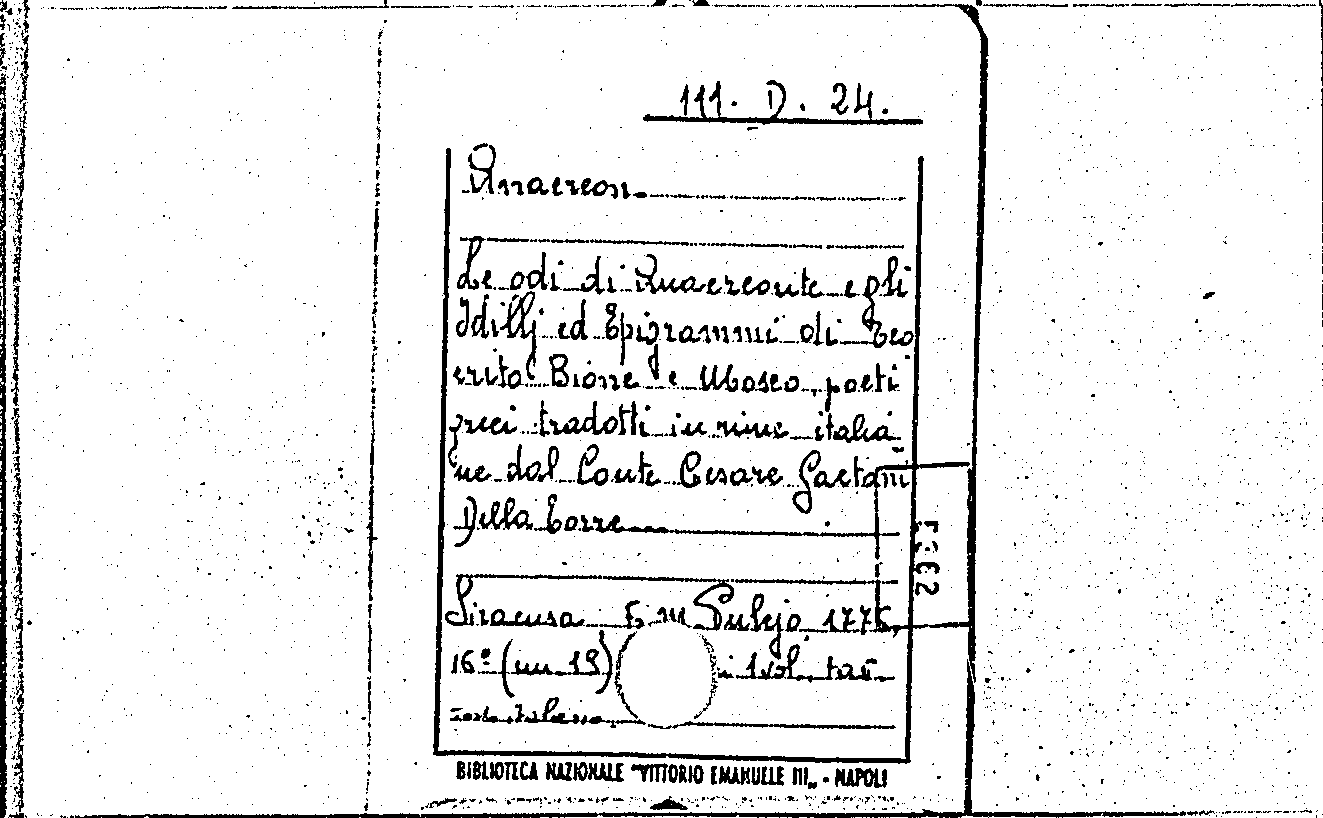 111. D. 24.
Anacreon.
Le odi di Anacreonte e gli
Idillj ed Epigrammi di Teo
crito Bione e Mosco, poeti
greci tradotti in rime italia
ne dal Conte Cesare Gaetani
Della Torre
Siracusa F. M. Pulejo 1776,
16º (cm. 19) 1 vol. tav.
BIBLIOTECA NAZIONALE "VITTORIO EMANUELE III„ - NAPOLI